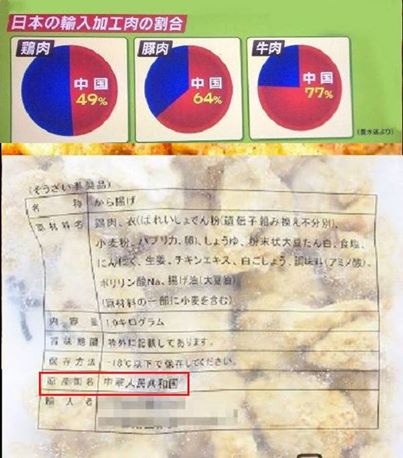 日本の輸入加工肉の割合
鶏肉
豚肉
牛肉
中国
49%
中国
64%
中国
77%
(農水省より)
(そうざい半製品)
名称 から揚げ
原材料名 鶏肉、衣(ばれいしょでん粉(遺伝子組み換え不分別)、
小麦粉、パプリカ、卵)、しょうゆ、粉末状大豆たん白、食塩、
にんにく、生姜、チキンエキス、白こしょう、調味料(アミノ酸)、
ポリリン酸Na、揚げ油(大豆油)
(原材料の一部に小麦を含む)
内容量 1.0キログラム
賞味期限 枠外に記載してあります。
保存方法 -18℃以下で保存してください。
原産国名 中華人民共和国
輸入者